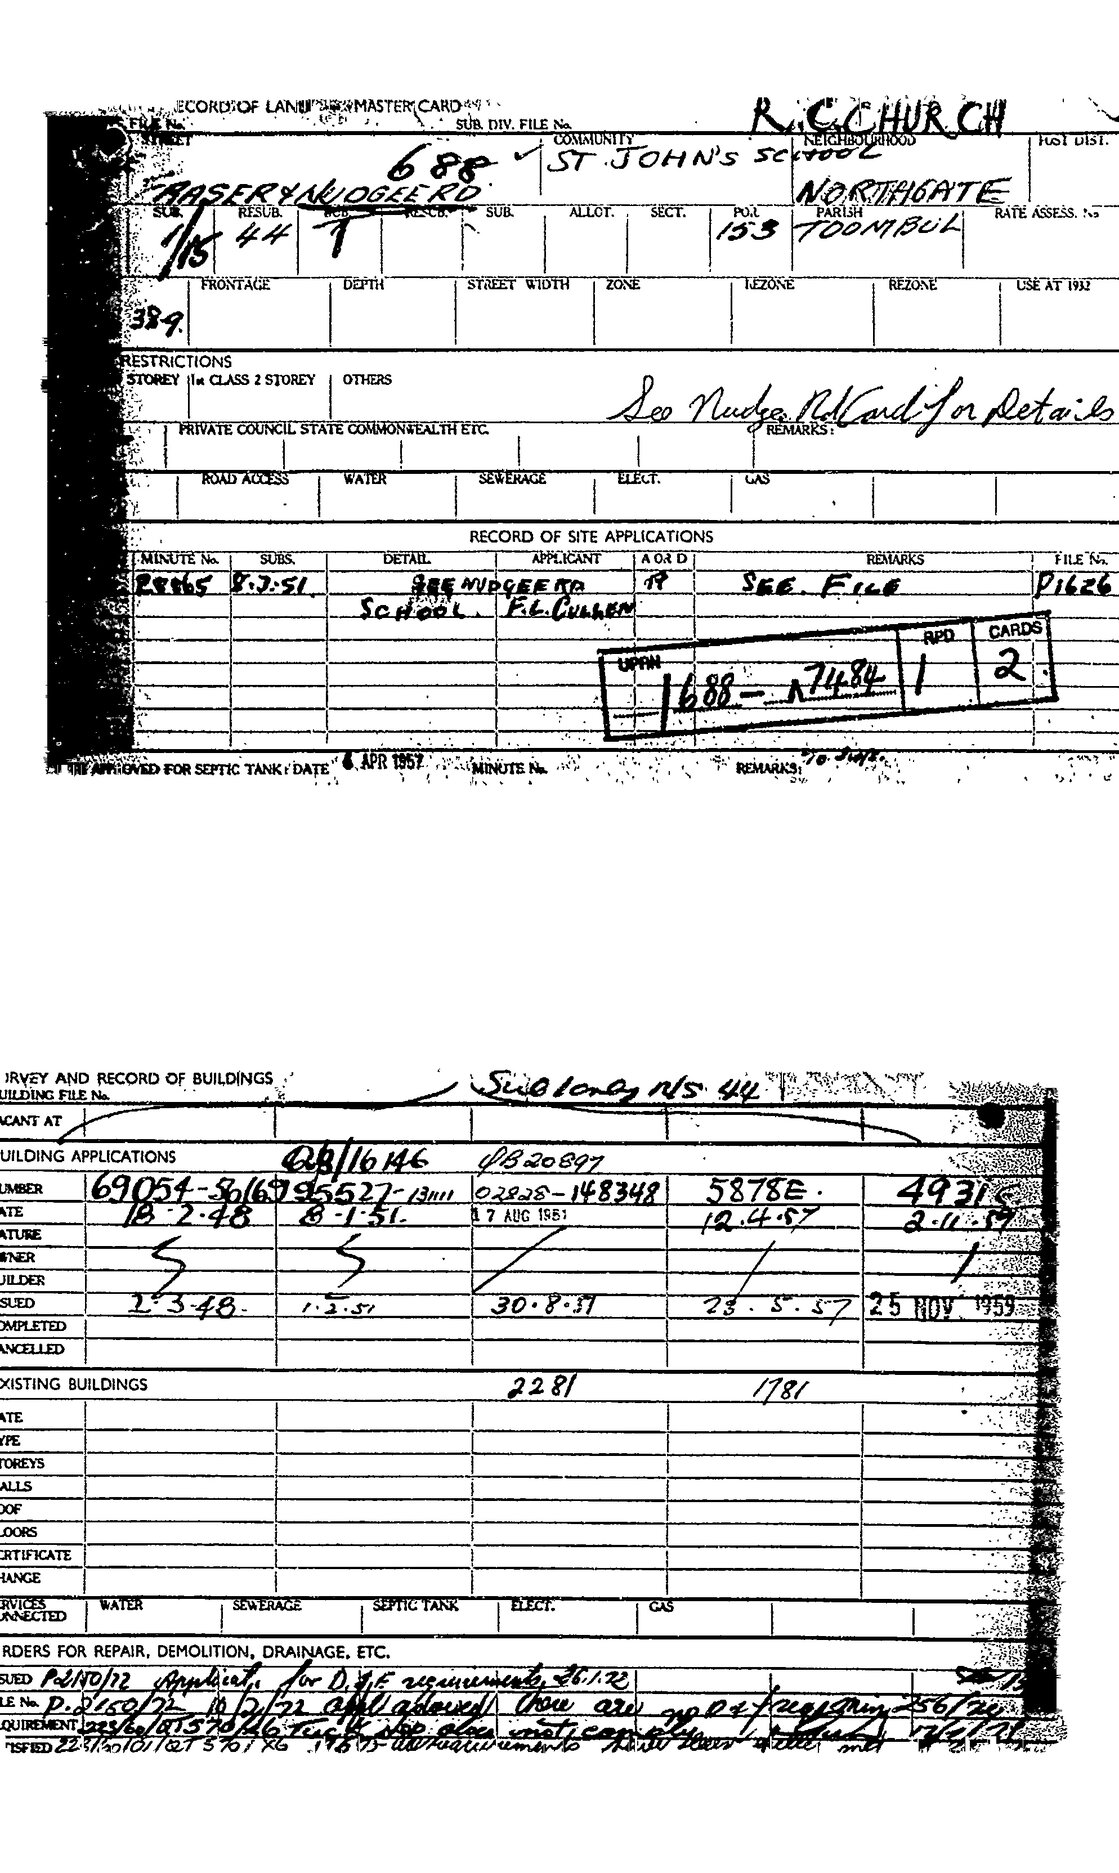 ECORD OF LAND MASTER CARD
R.C. CHURCH
FILE No. SUB. DIV. FILE No.
STREET COMMUNITY NEIGHBOURHOOD POST DIST.
688 ✓ ST JOHN'S SCHOOL
FRASER & NUDGEE RD NORTHGATE
SUB. RESUB. SUB. RESUB. SUB. ALLOT. SECT. POR. PARISH RATE ASSESS. No
1/15 44 153 TOOMBUL
FRONTAGE DEPTH STREET WIDTH ZONE REZONE REZONE USE AT 1932
389.
RESTRICTIONS
STOREY 1st CLASS 2 STOREY OTHERS
See Nudgee Rd Card for Details
PRIVATE COUNCIL STATE COMMONWEALTH ETC. REMARKS:
ROAD ACCESS WATER SEWERAGE ELECT. GAS
RECORD OF SITE APPLICATIONS
MINUTE No. SUBS. DETAIL APPLICANT A OR D REMARKS FILE No.
28865 8.3.51. SEE NUDGEE RD A SEE. FILE P1626
SCHOOL. F.L. CULLEN
UPRN RPD CARDS
1688 - 7484 1 2
APPROVED FOR SEPTIC TANK: DATE 6 APR 1957 MINUTE No. REMARKS:
URVEY AND RECORD OF BUILDINGS
Sub 1 only R/S 44
UILDING FILE No.
ACANT AT
UILDING APPLICATIONS 16146 20897
UMBER 69054-56/65 195527- 02828-148348 5878E. 4931
ATE 18-2-48 8-1-51. 17 AUG 1951 12.4.57 2.11.59
ATURE
WNER
UILDER
SUED 2-3-48. 1.2.51 30.8.51 23.5.57 25 NOV 1959
OMPLETED
ANCELLED
XISTING BUILDINGS 2281 1781
ATE
YPE
TOREYS
ALLS
OOF
LOORS
ERTIFICATE
HANGE
RVICES WATER SEWERAGE SEPTIC TANK ELECT. GAS
NNECTED
RDERS FOR REPAIR, DEMOLITION, DRAINAGE, ETC.
SUED P2150/72 Applicat. for D.of E requirements, 26.1.72
LE No. P.2150/72 10/2/72 appl advised there are no D of requirements 256/
QUIREMENT 223/60/QT570/ does not comply
TISFIED requirements have been met